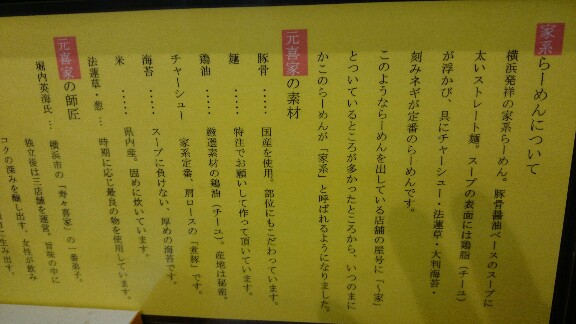 家系らーめんについて
横浜発祥の家系らーめん。豚骨醤油ベースのスープに
太いストレート麺。スープの表面には鶏脂(チーユ)
が浮かび、具にチャーシュー・法蓮草・大判海苔・
刻みネギが定番のらーめんです。
このようならーめんを出している店舗の屋号に「~家」
とついているところが多かったところから、いつのまに
かこのらーめんが「家系」と呼ばれるようになりました。
元喜家の素材
豚骨 ・・・・・ 国産を使用。部位にもこだわっています。
麺 ・・・・・ 特注でお願いして作って頂いています。
鶏油 ・・・・・ 厳選素材の鶏油(チーユ)。産地は秘密。
チャーシュー 家系定番、肩ロースの「煮豚」です。
海苔 ・・・・・ スープに負けない、厚めの海苔です。
米 ・・・・・ 県内産。固めに炊いています。
法蓮草・葱 … 時期に応じ最良の物を使用しています。
元喜家の師匠
堀内英海氏 … 横浜市の「寿々喜家」の一番弟子。
独立後は三店舗を運営。旨味の中に
コクの深みを醸し出す。女性が飲み